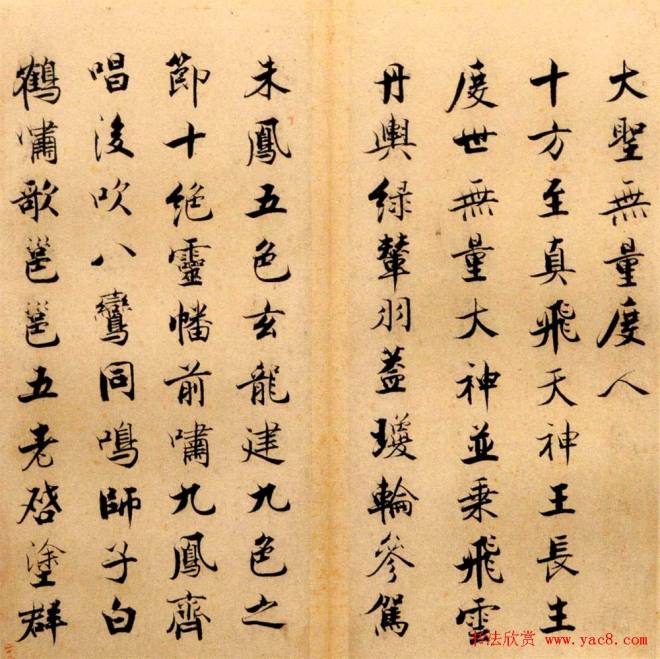 大聖無量度人
十方至真飛天神王長生
度世無量大神並乘飛雲
丹輿緑輦羽蓋瓊輪參駕
朱鳳五色玄龍建九色之
節十絶靈幡前嘯九鳳齊
唱後吹八鸞同鳴師子白
鶴嘯歌邕邕五老啓塗群
书法欣赏 www.yac8.com